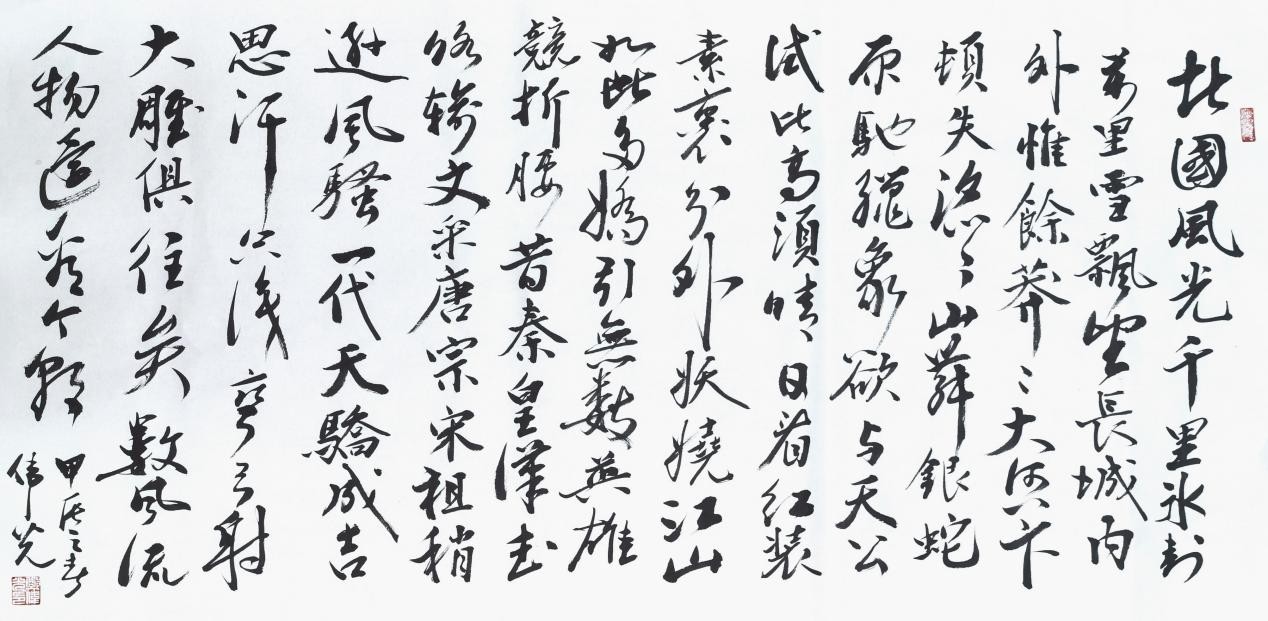 北國風光千里冰封
萬里雪飄望長城內
外惟餘莽〻大河上下
頓失滔〻山舞銀蛇
原馳臘象欲與天公
試比高須晴日看紅裝
素裹分外妖嬈江山
如此多嬌引無數英雄
競折腰昔秦皇漢武
略輸文采唐宗宋祖稍
遜風騷一代天驕成吉
思汗只識彎弓射
大雕俱往矣數風流
人物還看今朝
甲辰之春
偉光